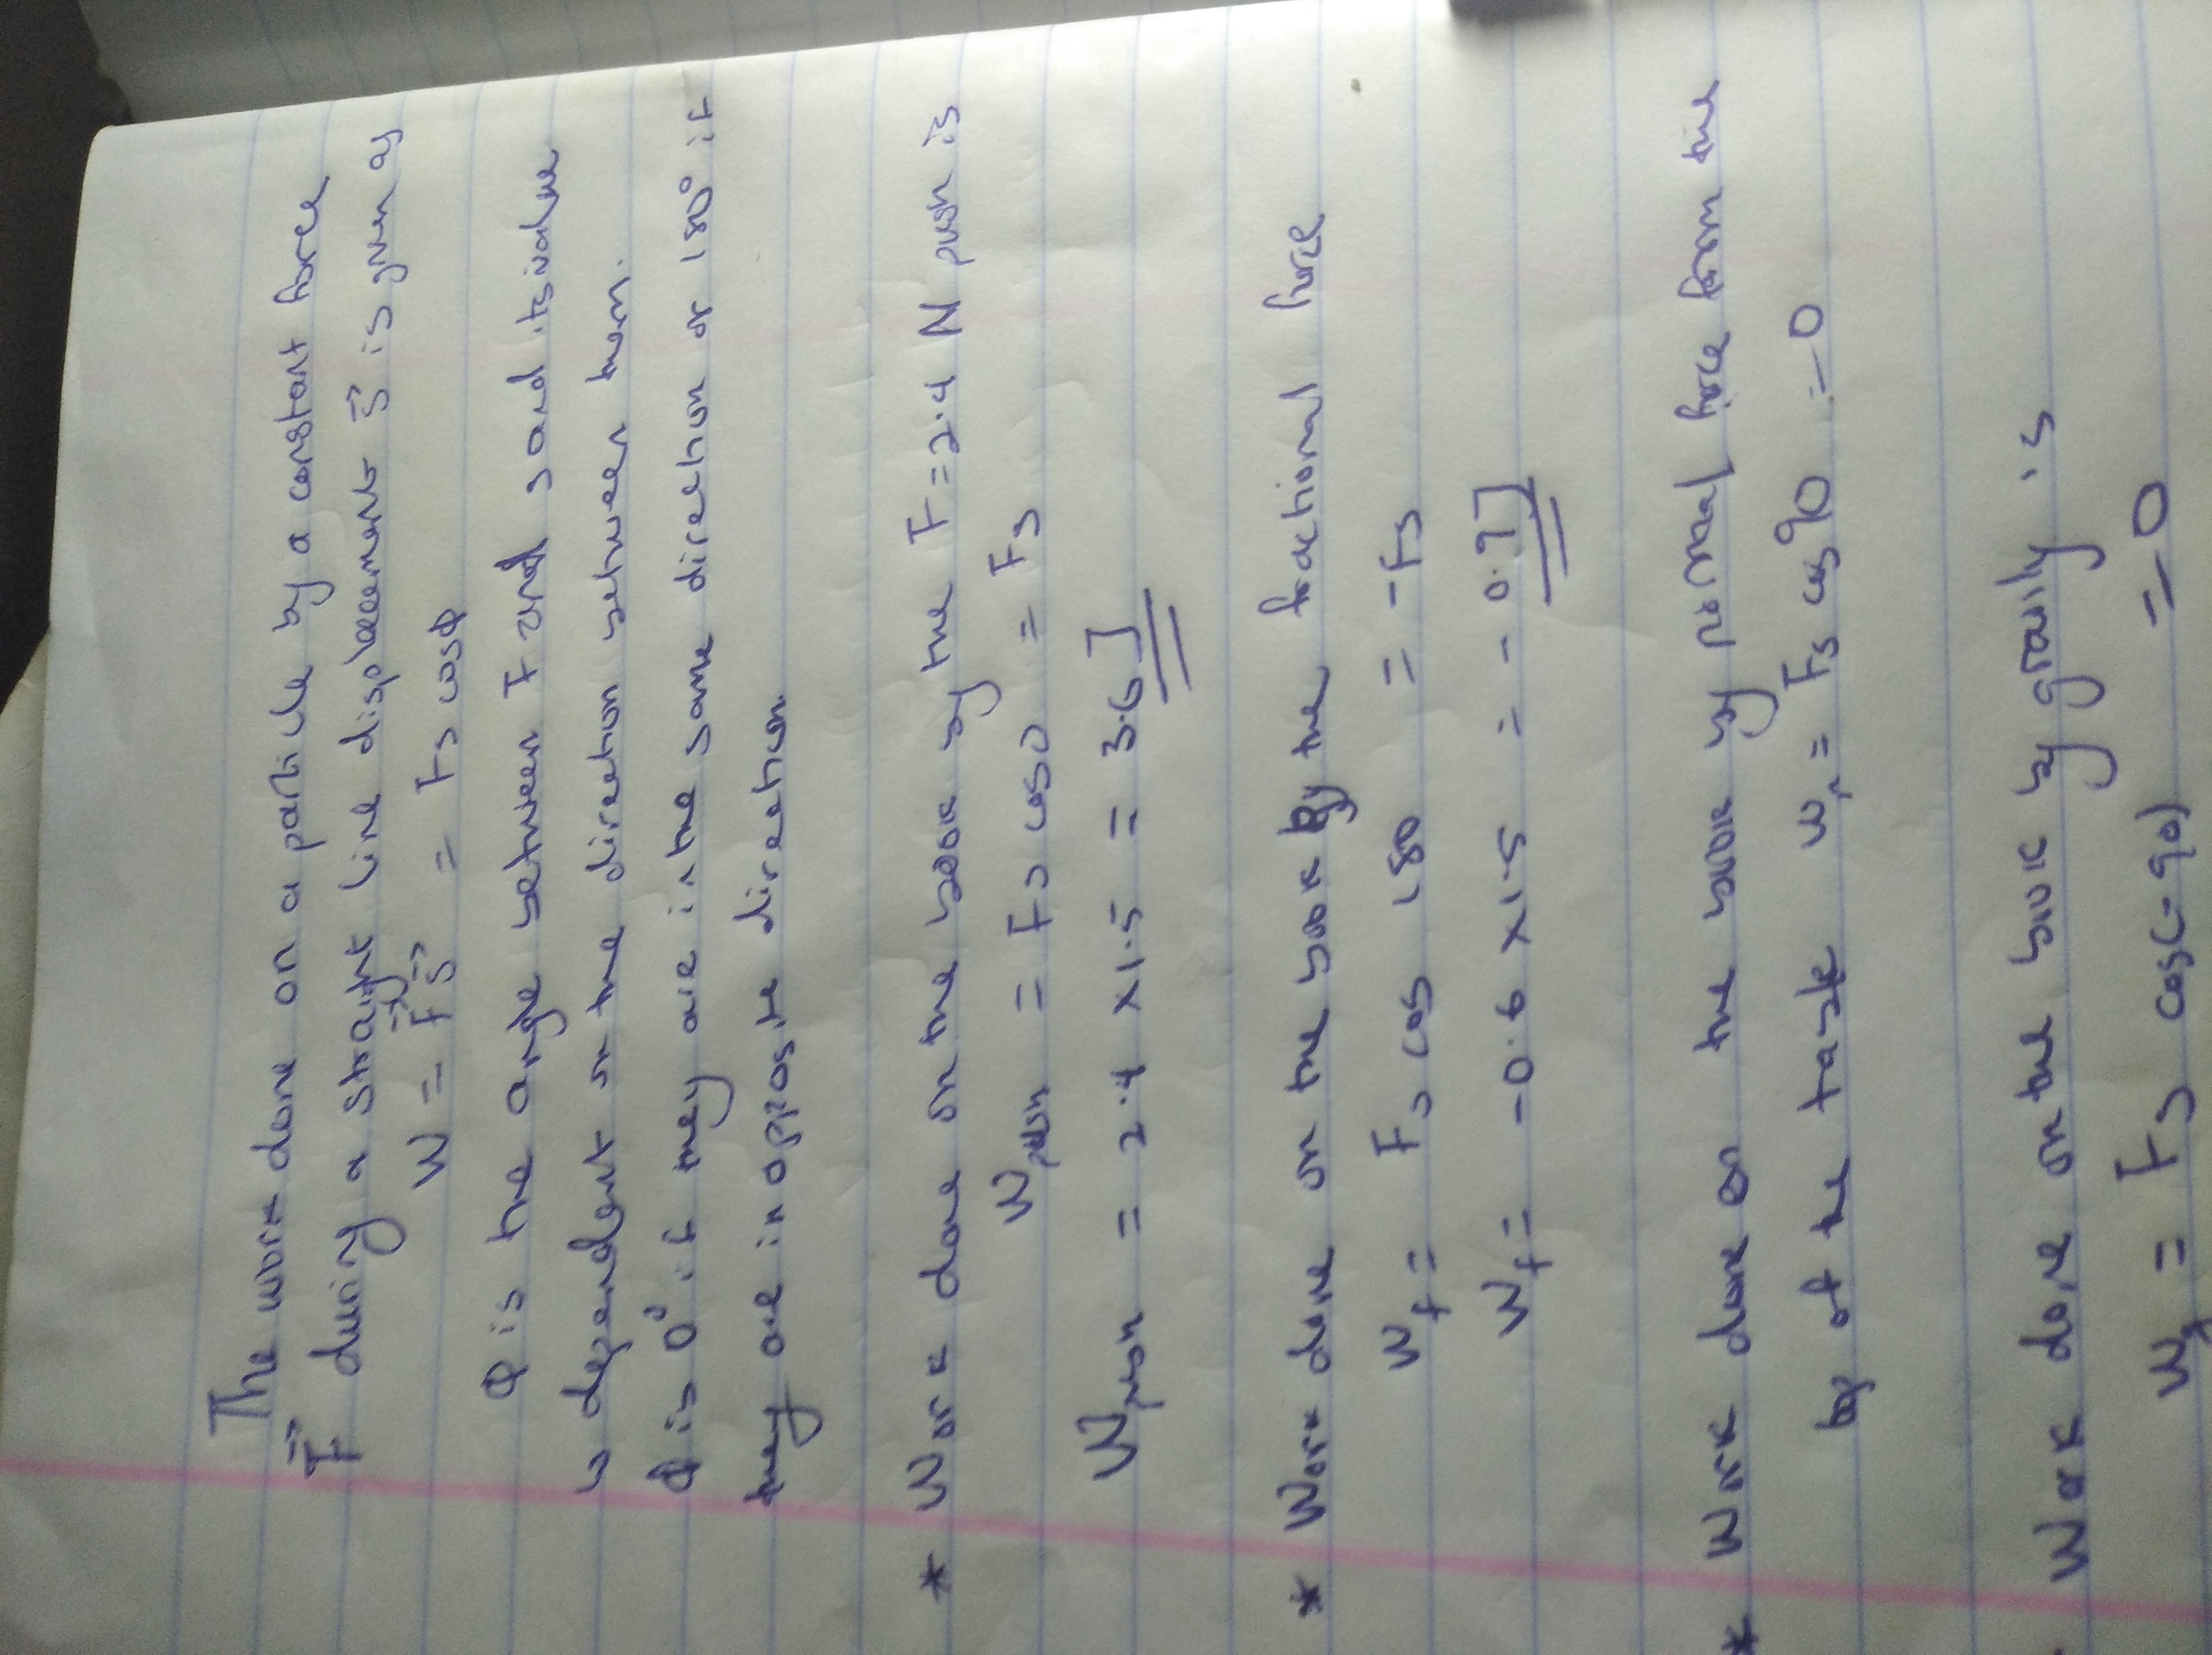 The work done on a particle by a constant force
F⃗ during a straight line displacement s⃗ is given as
W = F⃗ s⃗ = Fs cosΦ
Φ is the angle between F and s and its value
is dependent on the direction between them.
Φ is 0° if they are in the same direction or 180° if
they are in opposite direction
* Work done on the book by the F = 2.4 N push is
W push = Fs cos 0 = Fs
W push = 2.4 × 1.5 = 3.6J
* Work done on the book by the fractional force
W f = Fs cos 180 = -Fs
W f = -0.6 × 1.5 = -0.9J
* Work done on the book by normal force from the
top of the table W n = Fs cos 90 = 0
Work done on the book by gravity is
= Fs cos(-90) = 0